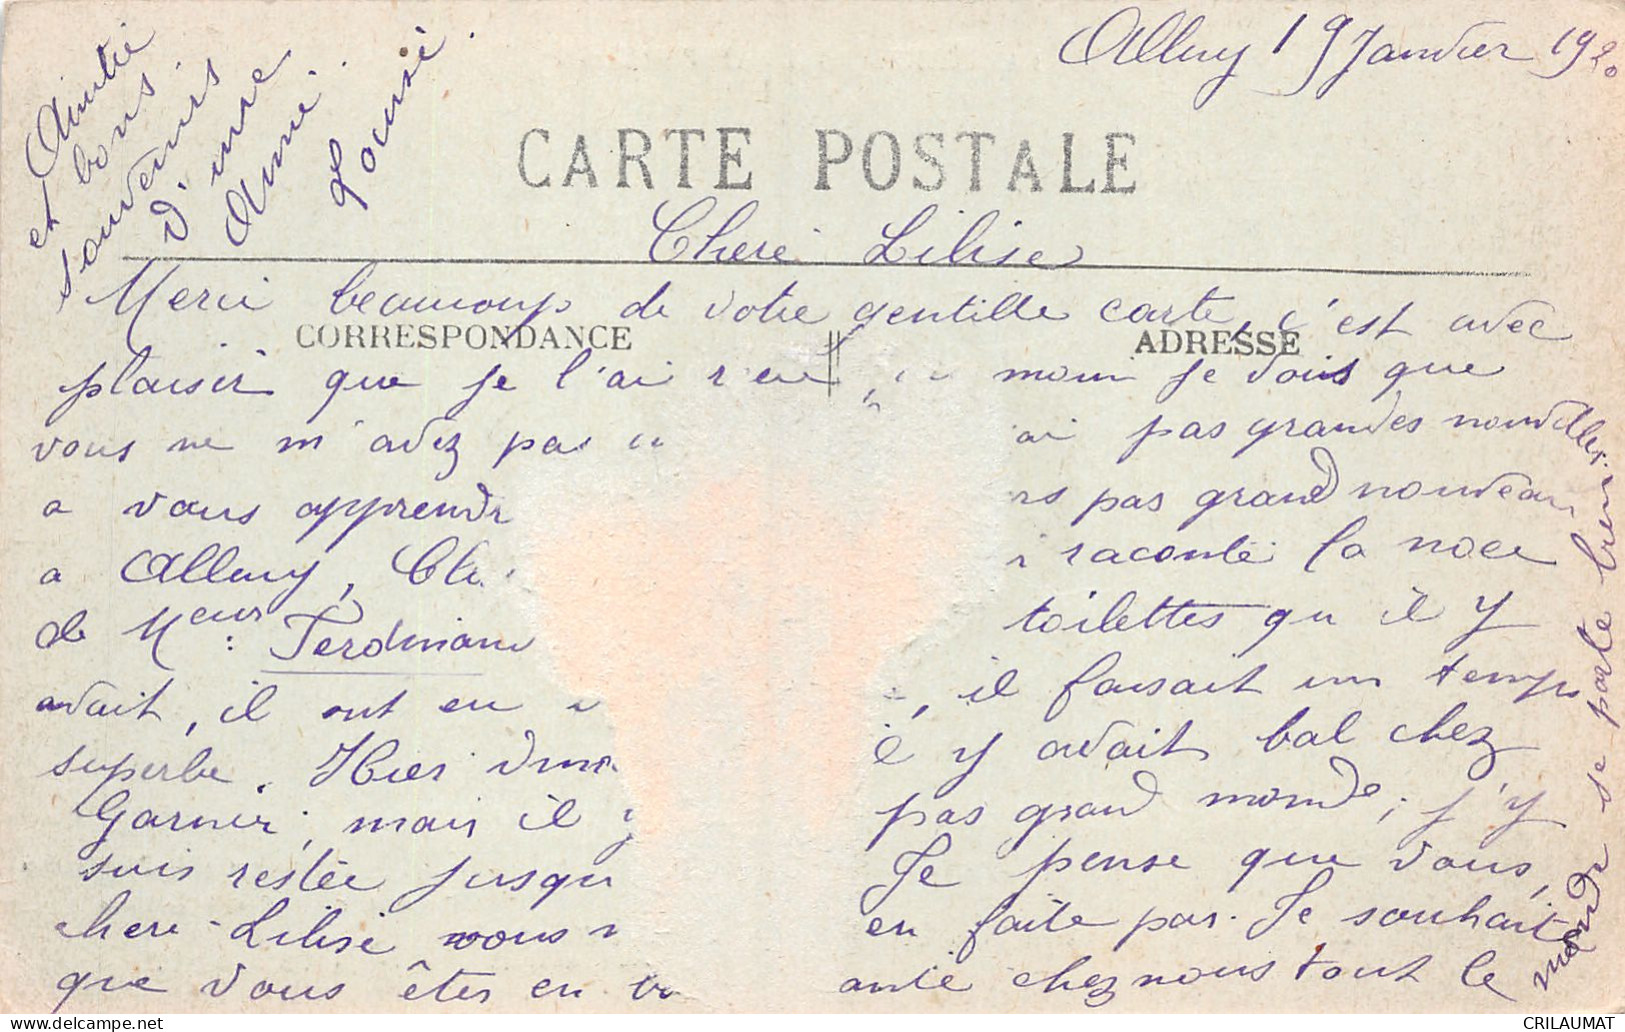 Alluy 19 Janvier 1920
Amitié
et bons
souvenirs
d'une
Amie.
Louise.
CARTE POSTALE
Chere Lilise
Merci beaucoup de votre gentille carte, c'est avec
CORRESPONDANCE
ADRESSE
plaisir que je l'ai moin je vois que
vous ne m'avez pas pas grandes nouvelles
a vous apprendr pas grand nouveau
a Alluy, raconte la noce
de Meur: Ferdinand toilettes qu il y
avait, il ont eu , il faisait un temps
superbe. Hier y avait bal chez
Garnier; mais il pas grand monde; j'y
suis restée jusqu Je pense que vous,
chere Lilise vous en faite pas. Je souhaite
que vous êtes en chez nous tout le
monde se porte bien.
CRILAUMAT